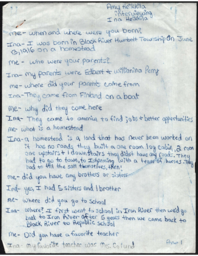 me- when and where were you born?
Ina- I was born in Black River Humbolt Township on June
on a homestead
me- who were your parents?
Ina- my parents were Edbert &
me- where did your parents come from
Ina- They came from Finland on a boat
me- why did they come here
Ina- They came to America to find jobs & better opportunities
me- what is a homestead
Ina- a homestead is a land that has never been worked on
it has no roads, they built a one room log cabin 2 rom
one upstairs & 1 downstairs they didn't have any roads. They
had to go to town to
me- did you have any brothers or sisters
Ina- yes I had 5 sisters and 1 brother
me- where did you go to school
Ina- where? I first went to school in Iron River then we'd go
back to Iron River After 6 years then we came back to
Black River to Republic school
me- Did you have a favorite teacher
Ina- my favorite teacher was